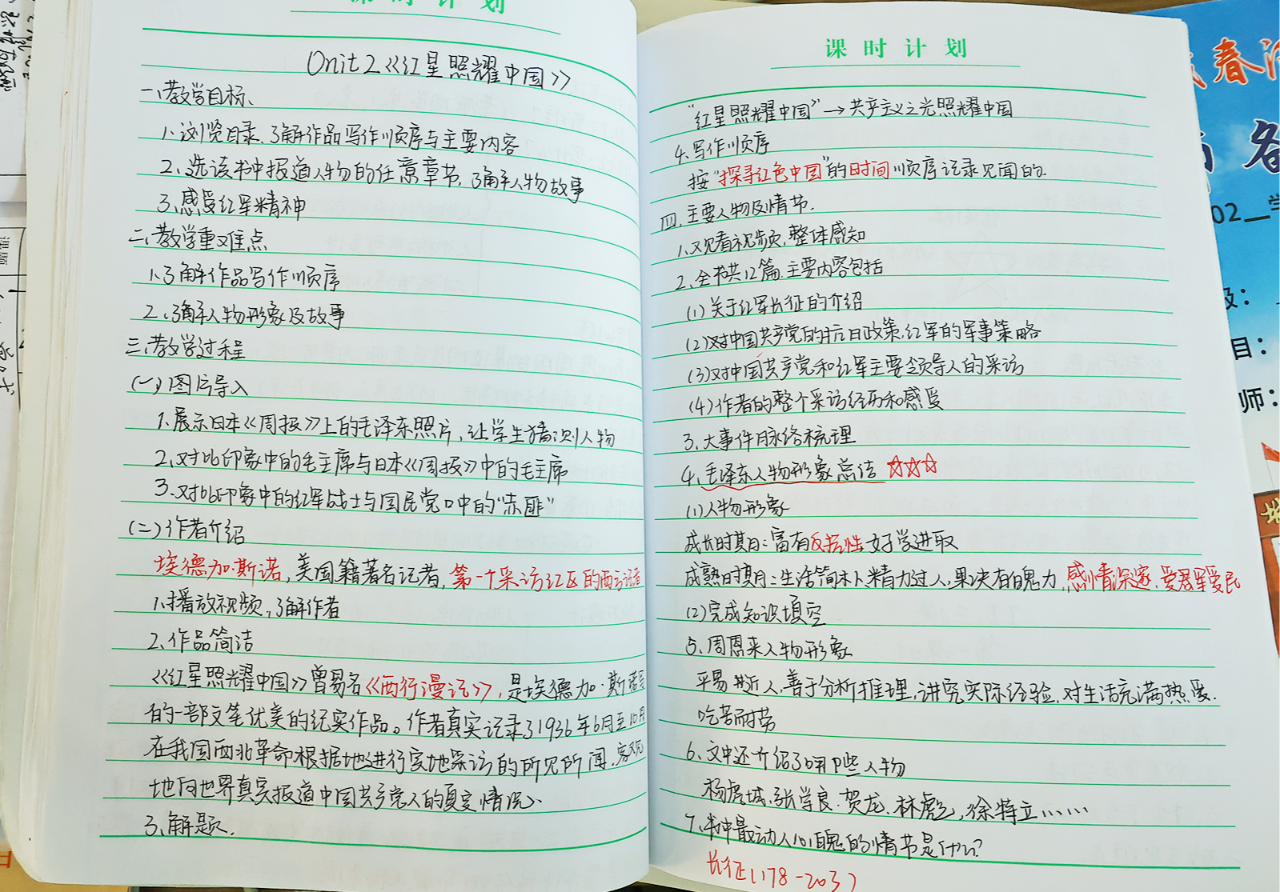 课时计划
Unit 2《红星照耀中国》
一、教学目标、
1、浏览目录,了解作品写作顺序与主要内容
2、选读书中报道人物的任意章节,了解人物故事
3、感受红军精神
二、教学重难点
1、了解作品写作顺序
2、了解人物形象及故事
三、教学过程
(一)图片导入
1、展示日本《周报》上的毛泽东照片,让学生猜识人物
2、对比印象中的毛主席与日本《周报》中的毛主席
3、对比印象中的红军战士与国民党口中的"赤匪"
(二)作者介绍
埃德加·斯诺,美国籍著名记者,第一个采访红区的西方记者
1、播放视频,了解作者
2、作品简洁
《红星照耀中国》曾易名《西行漫记》,是埃德加·斯诺
的一部文笔优美的纪实作品。作者真实记录了1936年6月至10月
在我国西北革命根据地进行实地采访的所见所闻,客观
地向世界真实报道中国共产党人的真实情况、
3、解题、
课时计划
"红星照耀中国"→共产主义之光照耀中国
4、写作顺序
按"探寻红色中国"的时间顺序记录见闻的、
四、主要人物及情节、
1、观看视频,整体感知
2、全书共12篇,主要内容包括
(1)关于红军长征的介绍
(2)对中国共产党的抗日政策,红军的军事策略
(3)对中国共产党和红军主要领导人的采访
(4)作者的整个采访经历和感受
3、大事件脉络梳理
4、毛泽东人物形象总结☆☆☆
(1)人物形象
成长时期:富有反抗性 好学进取
成熟时期:生活简朴、精力过人,果决有魄力,感情深邃、爱君爱民
(2)完成知识填空
5、周恩来人物形象
平易近人,善于分析推理,讲究实际经验,对生活充满热爱、
吃苦耐劳
6、文中还介绍了哪些人物
杨虎城、张学良、贺龙、林彪、徐特立……
7、书中最动人心魄的情节是什么?
长征(178-203)
春
备
02__学
级:
目:
师: